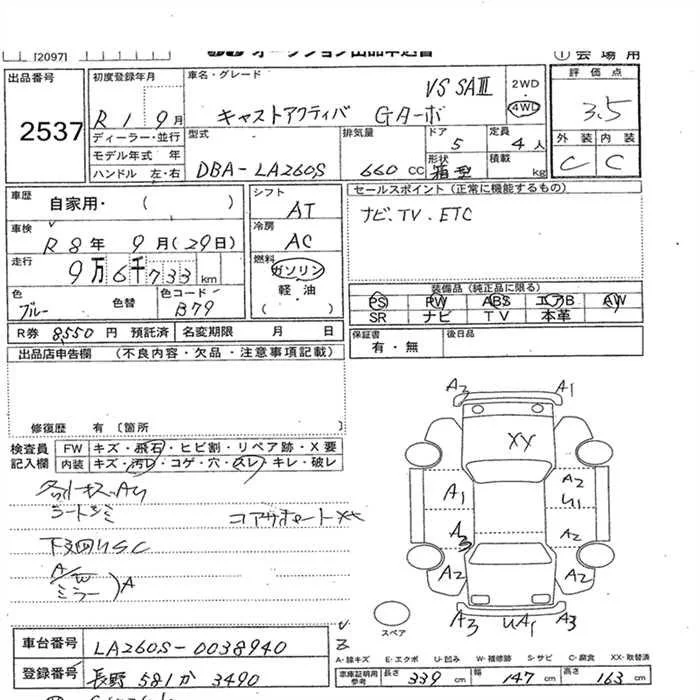 [2097]
① 会 場 用
出品番号
2537
初度登録年月
R 1 9月
ディーラー・並行
モデル年式 年
ハンドル 左・右
車名・グレード
VS SAⅢ
キャストアクティバ Gターボ
2WD
4WD
評 価 点
3.5
外 装 内 装
C C
型式
DBA-LA260S
排気量
660 CC
ドア
5
形状
箱型
定員
4人
積載
kg
車歴
自家用・( )
車検
R8年 9月(29日)
走行
9万6千733km
色
ブルー
色替
色コード
B79
シフト
AT
冷房
AC
燃料
ガソリン
軽・油
( )
セールスポイント(正常に機能するもの)
ナビ.TV.ETC
装備品(純正品に限る)
PS PW ABS エアB AW
SR ナビ TV 本革
R券 8,550円 預託済 名変期限 月 日
保証書
有・無
後日品
出品店申告欄 (不良内容・欠品・注意事項記載)
修復歴 有〔箇所 〕
検査員
記入欄
FW キズ・飛石・ヒビ割・リペア跡・X要
内装 キズ・汚レ・コゲ・穴・スレ・キレ・破レ
コアサポートXX
下廻りSC
A/W
ミラー )A
A3 A1
XY
A1 A2
U1
A3 A2
A2 A2
A3 UA1 A3
スペア
車台番号 LA260S-0038940
登録番号 長野 581 か 3490
A-線キズ E-エクボ U-凹み W-補修跡 S-サビ C-腐食 XX-取替済
車庫証明用
参考
長さ 339 cm 幅 147 cm 高さ 163 cm